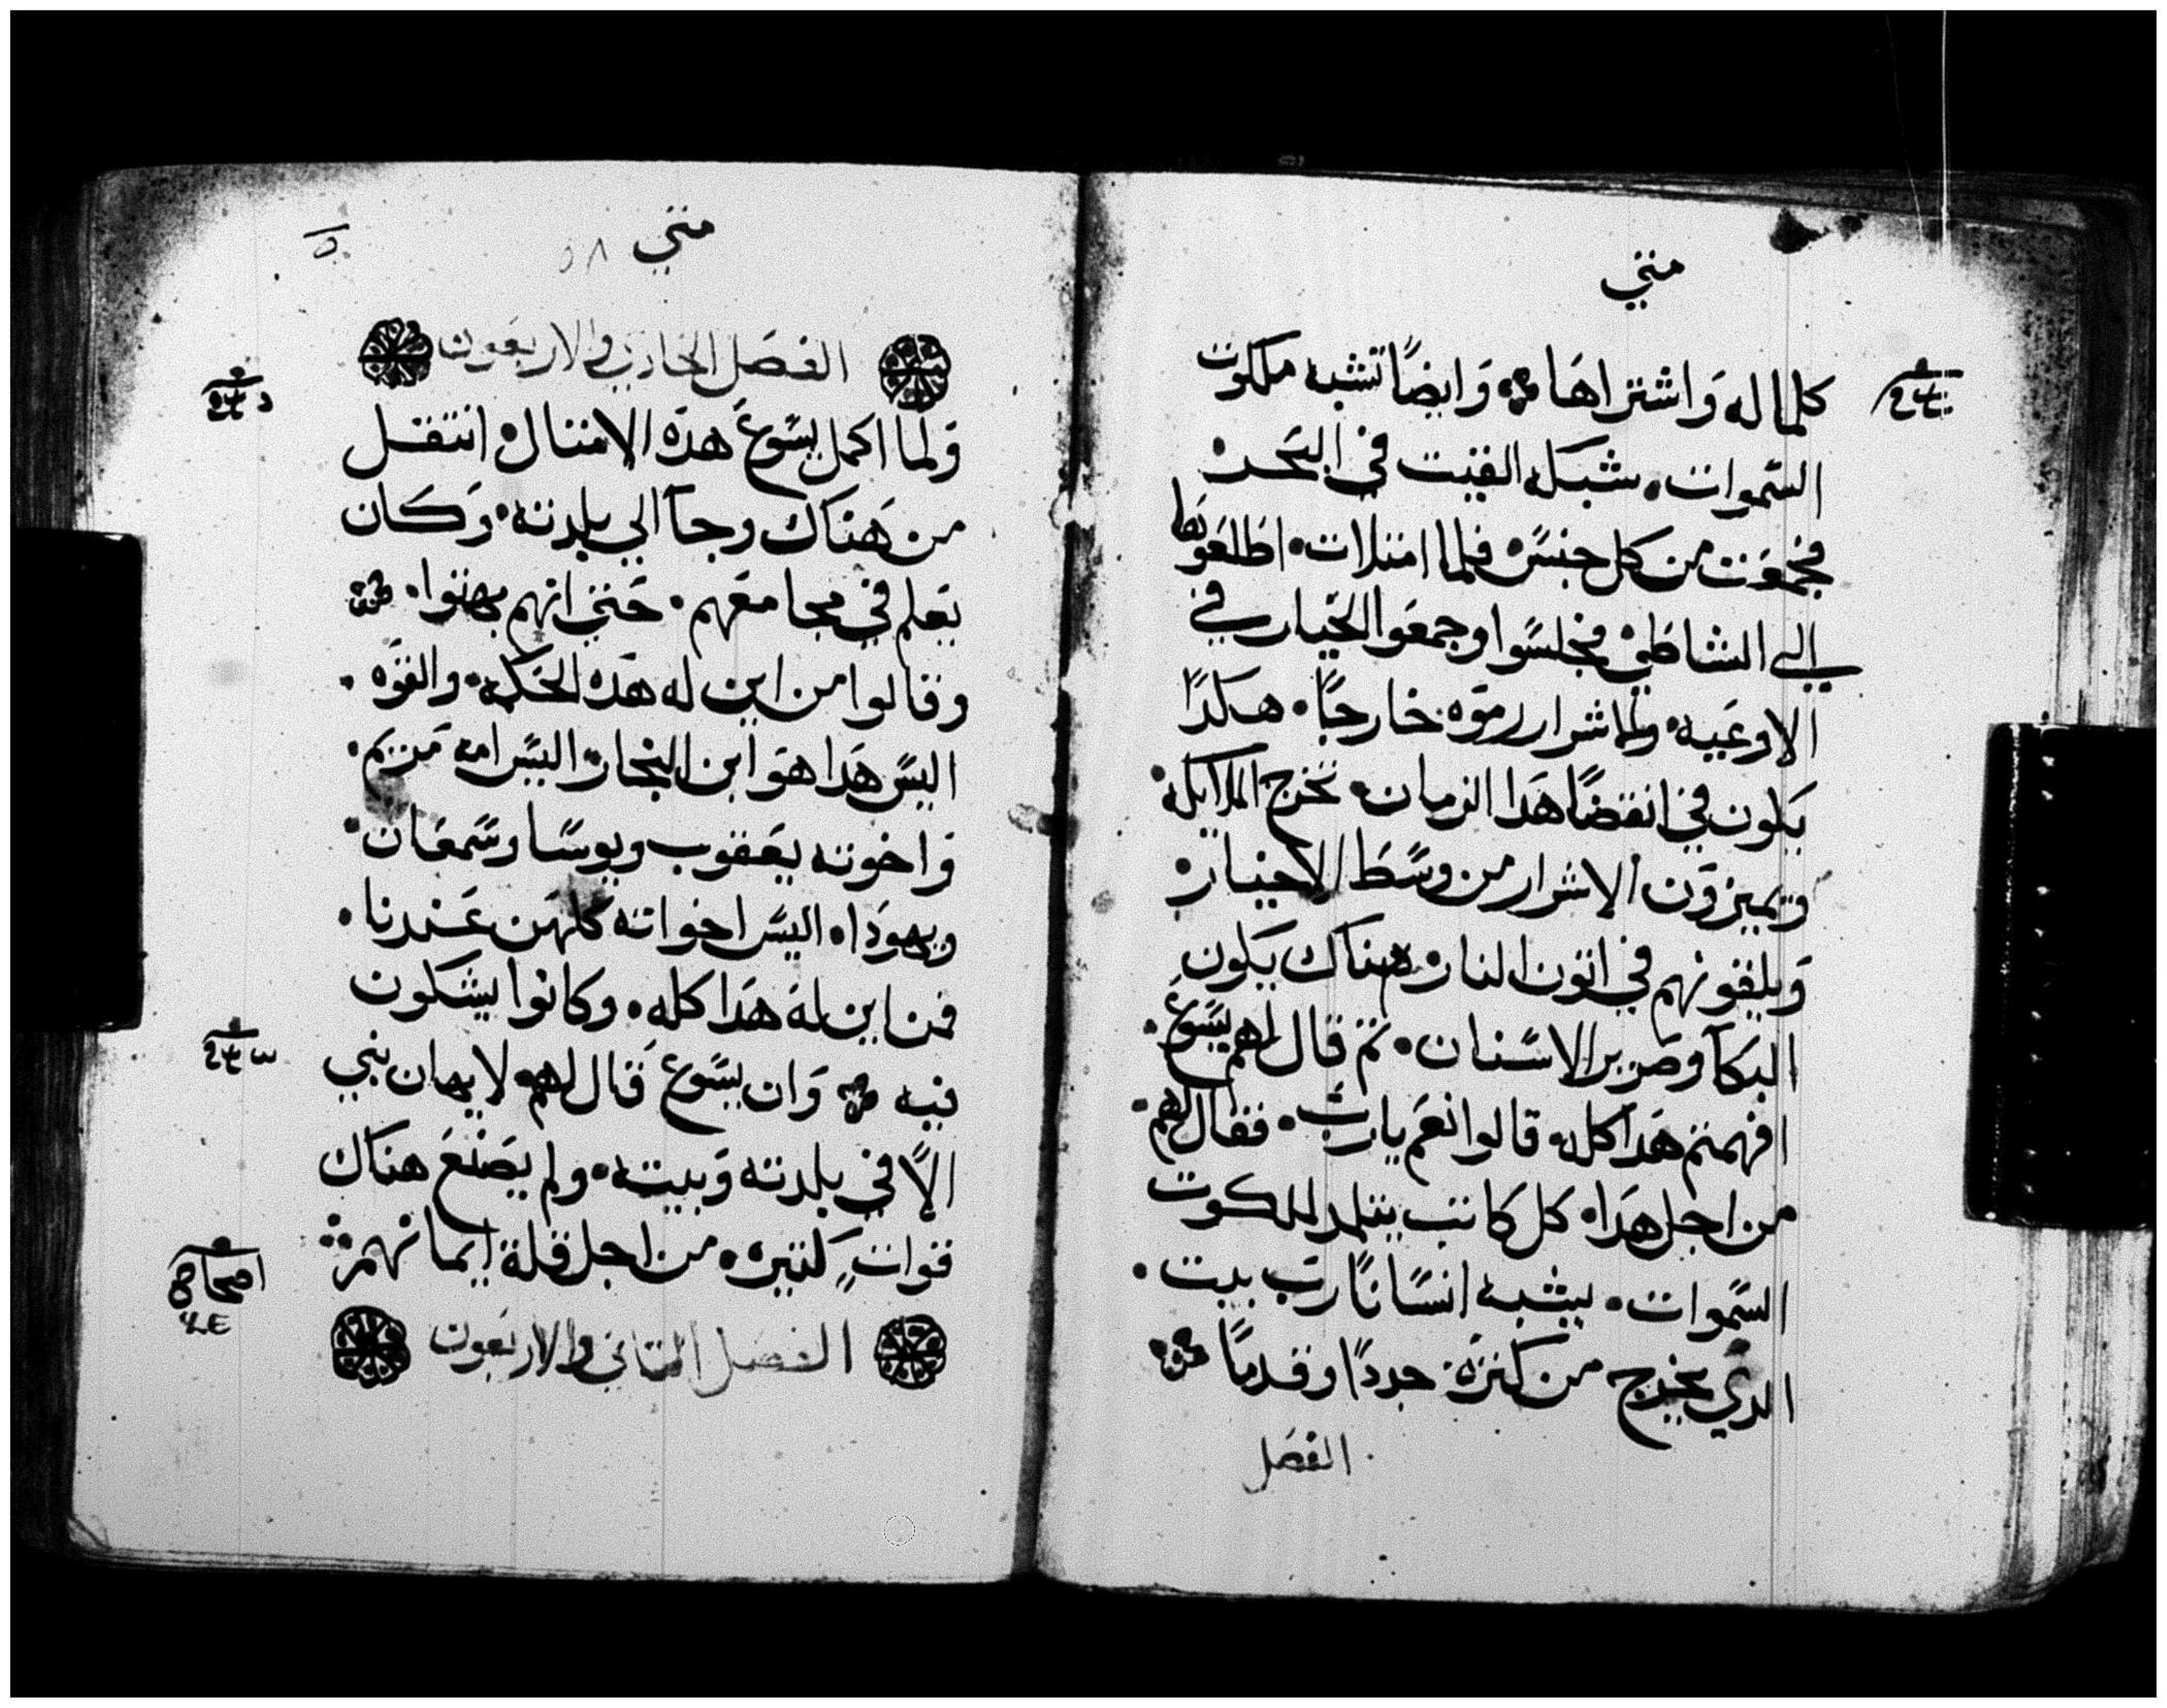 متي
كلما له وَاشتراهَا وَايضًا تشبه ملكوت
السَّموات. شبكه القيت في البَحر
فجمعَت من كل جنسَ فلما امتلات. اطلعَوهَا
الي الشاطي فجلسَوا وجمعَوا الخيار في
الاوعَيه. والاشرار رموَه خارجًا. هكدًا
يَكون في انقضَا هَدا الزمان. تخرج الملايكه.
ويميزوَن الاشرار من وسَط الاخيار.
وَيلقونهم في اتون النار. هناك يَكون
البَكآ وصَرير الاسَنان. تم قال لهم يسَوعَ.
افهمتم هَدا كله. قالوا نعَم يارب. فقال لهم.
من اجل هَدا. كل كاتب يتلمد لملكوت
السَّموات. يشبه انسَانًا رَب بيت.
الدي يخرج من كنزه. جددًا وقدمًا
الفصَل
متي
٥٨
الفصَل الحادي والاربعَون
وَلما اكمل يسَوعَ هدَه الامتال. انتقل
من هَناك وجآ الي بلدته. وَكَان
يَعَلم في مجامعَهم. حَتي انهم بهتوا.
وقالوا من اين له هَده الحَكمه. والقوَه.
اليسَ هَدا هوَ ابن النجار. اليسَ امه مَريم.
وَاخوته يعَقوب ويوسَا وسَمعَان.
ويهودَا. اليسَ اخواته كلهَن عَندنا.
فمن اين لهَ هَدا كله. وكانوا يشكون
فيه وَان يسَوعَ قَال لهم لا يهان نبي
الاَّ في بلدته وَبيته. ولم يصَنعَ هناك
قوات كتيره. من اجل قلة ايمانهم
الفصَل التاني والاربَعَون
اصحاح